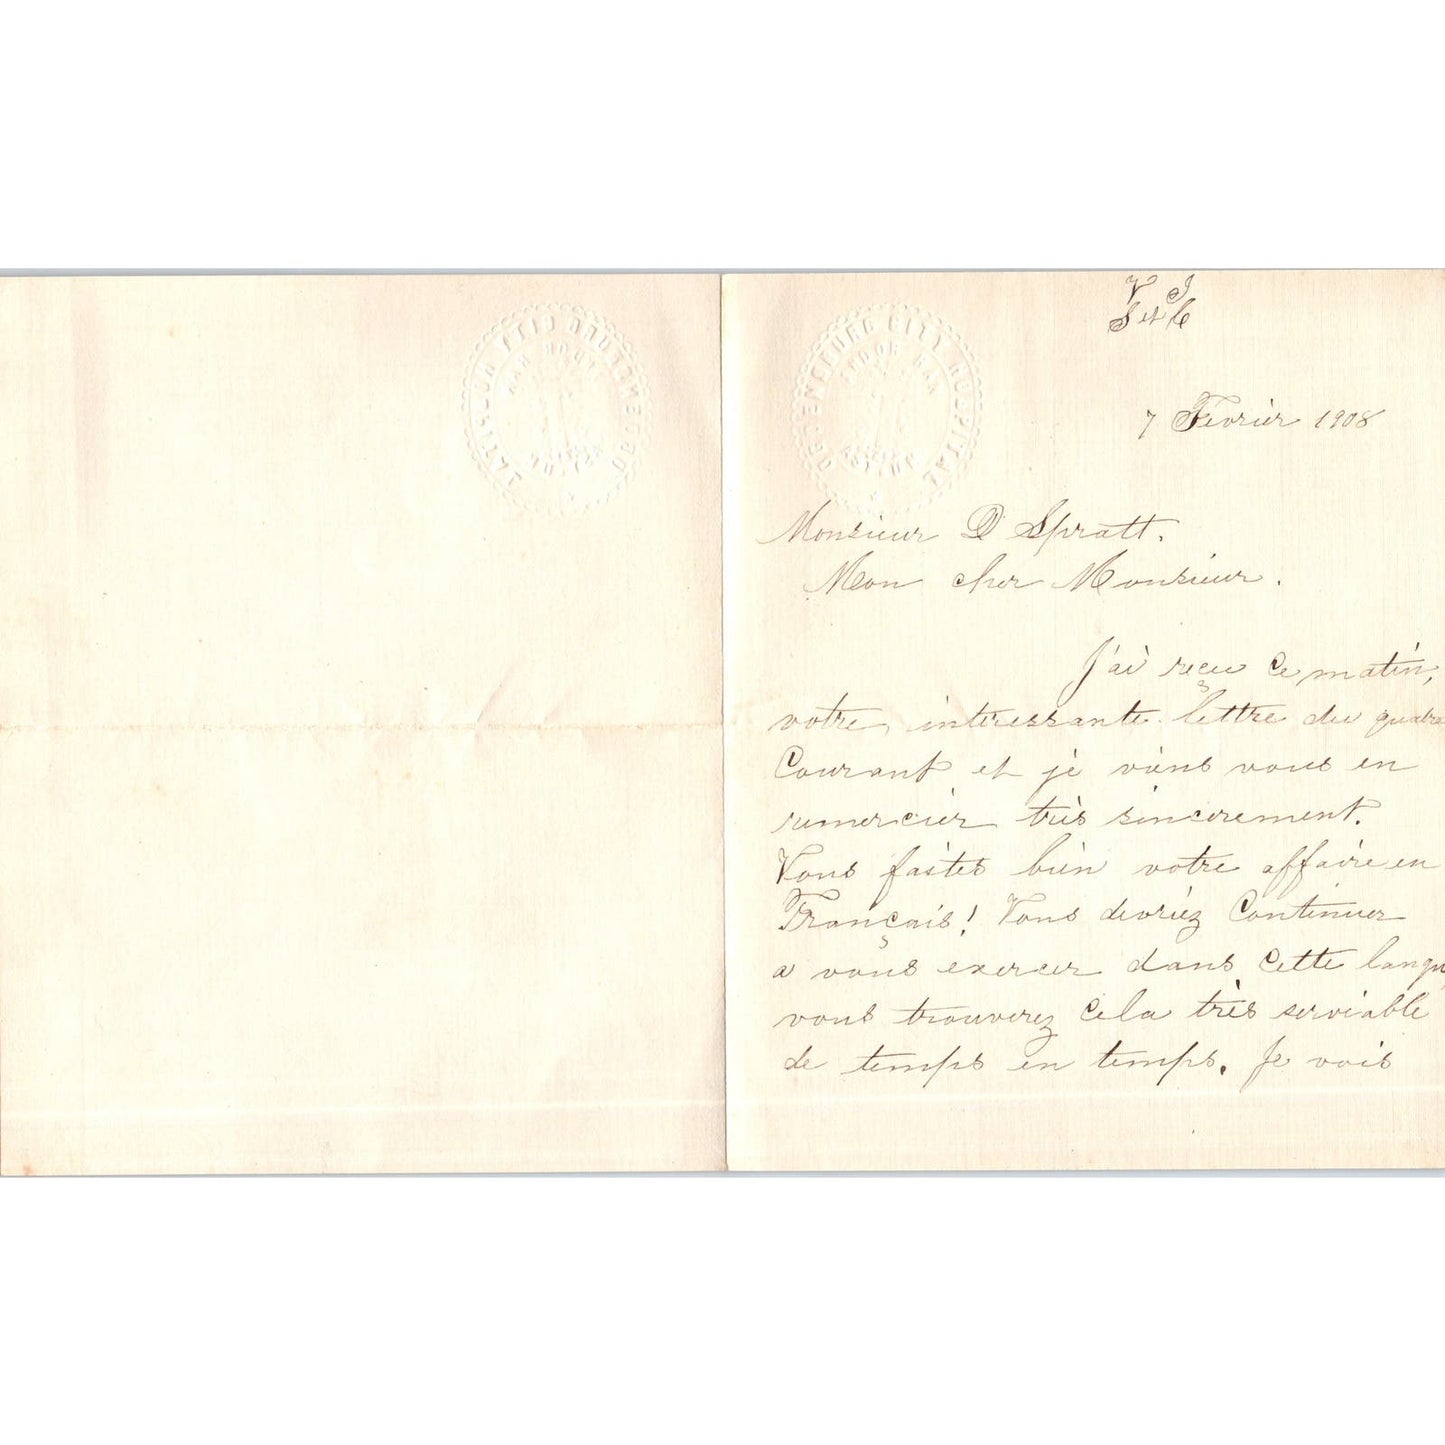 OGDENSBURG CITY HOSPITAL
V J
S et C
7 Fevrier 1908
Monsieur D Spratt.
Mon cher Monsieur.
J'ai reçu Ce matin,
votre, intéressante lettre du quatre
Courant et je viens vous en
remercier très sincerement.
Vous faites bien votre affaire en
Français! Vous devriez Continuer
a vous exercer dans Cette langu
vous trouverez Cela très serviable
de temps en temps. Je vois